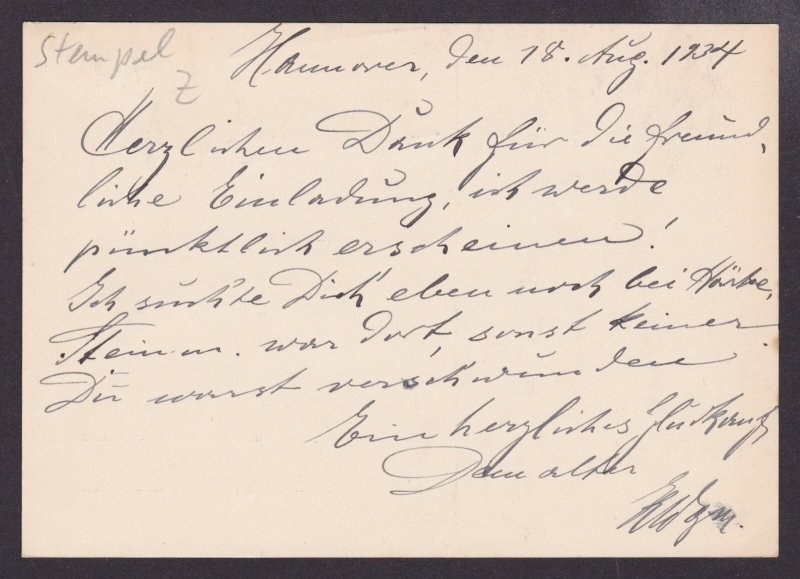 Stempel
Z
Hannover, den 18. Aug. 1934
Herzlichen Dank für die freund-
liche Einladung, ich werde
pünktlich erscheinen!
Ich suchte Dich eben noch bei
Steinm. war dort, sonst keiner.
Du warst verschwunden
Ein herzliches Glückauf
Dein alter